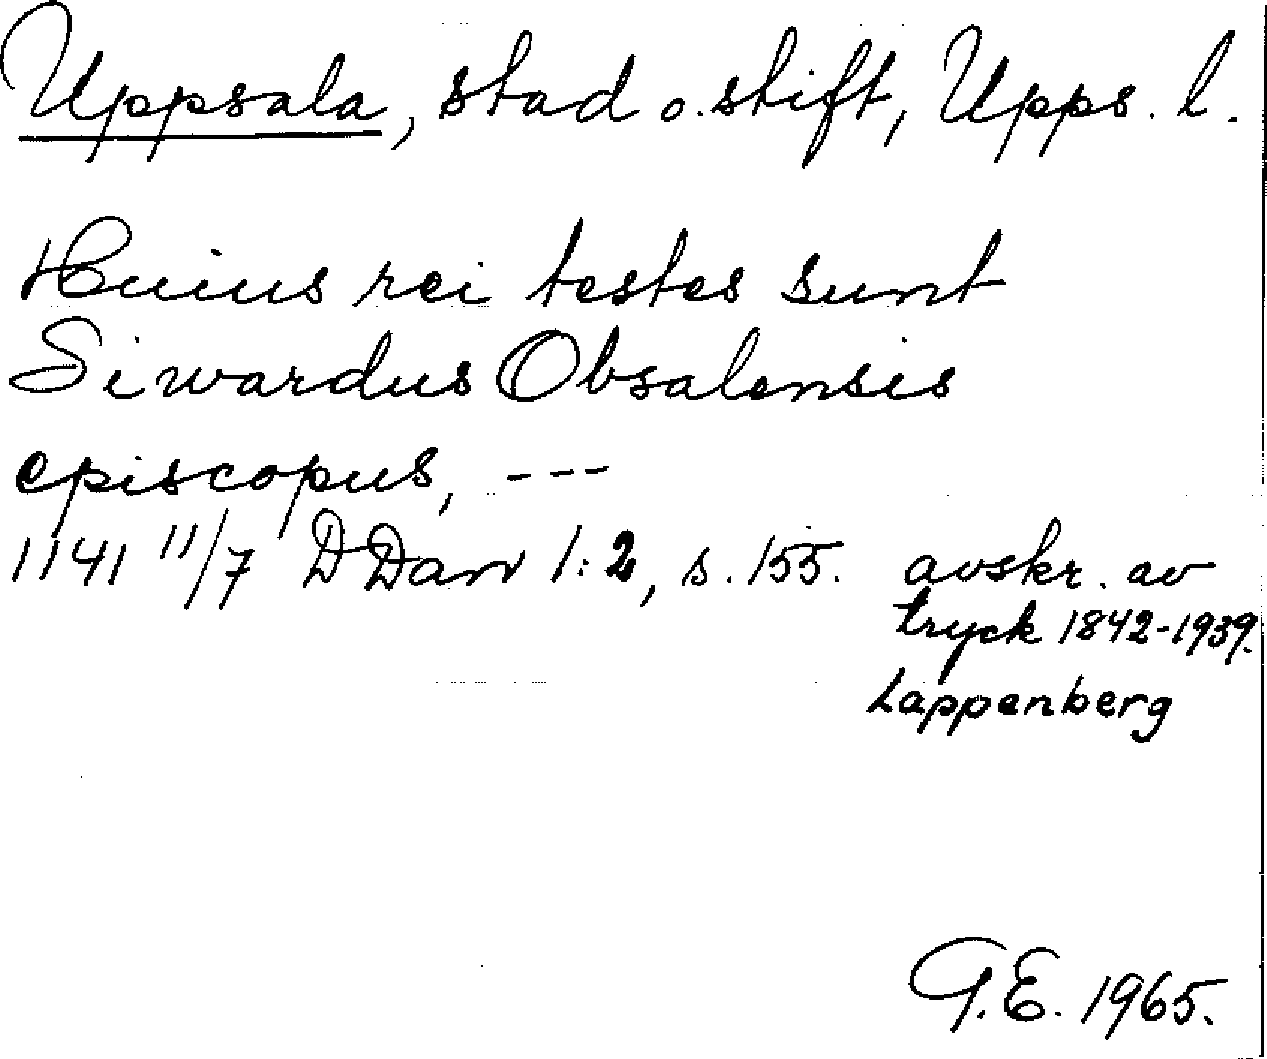 Uppsala, stad o. stift, Upps. l.
Huius rei testes sunt
Siwardus Obsalensis
episcopus, ---
1141 11/7 DDan 1:2, s. 155. avskr. av
tryck 1842-1939.
Lappenberg
G.E. 1965.